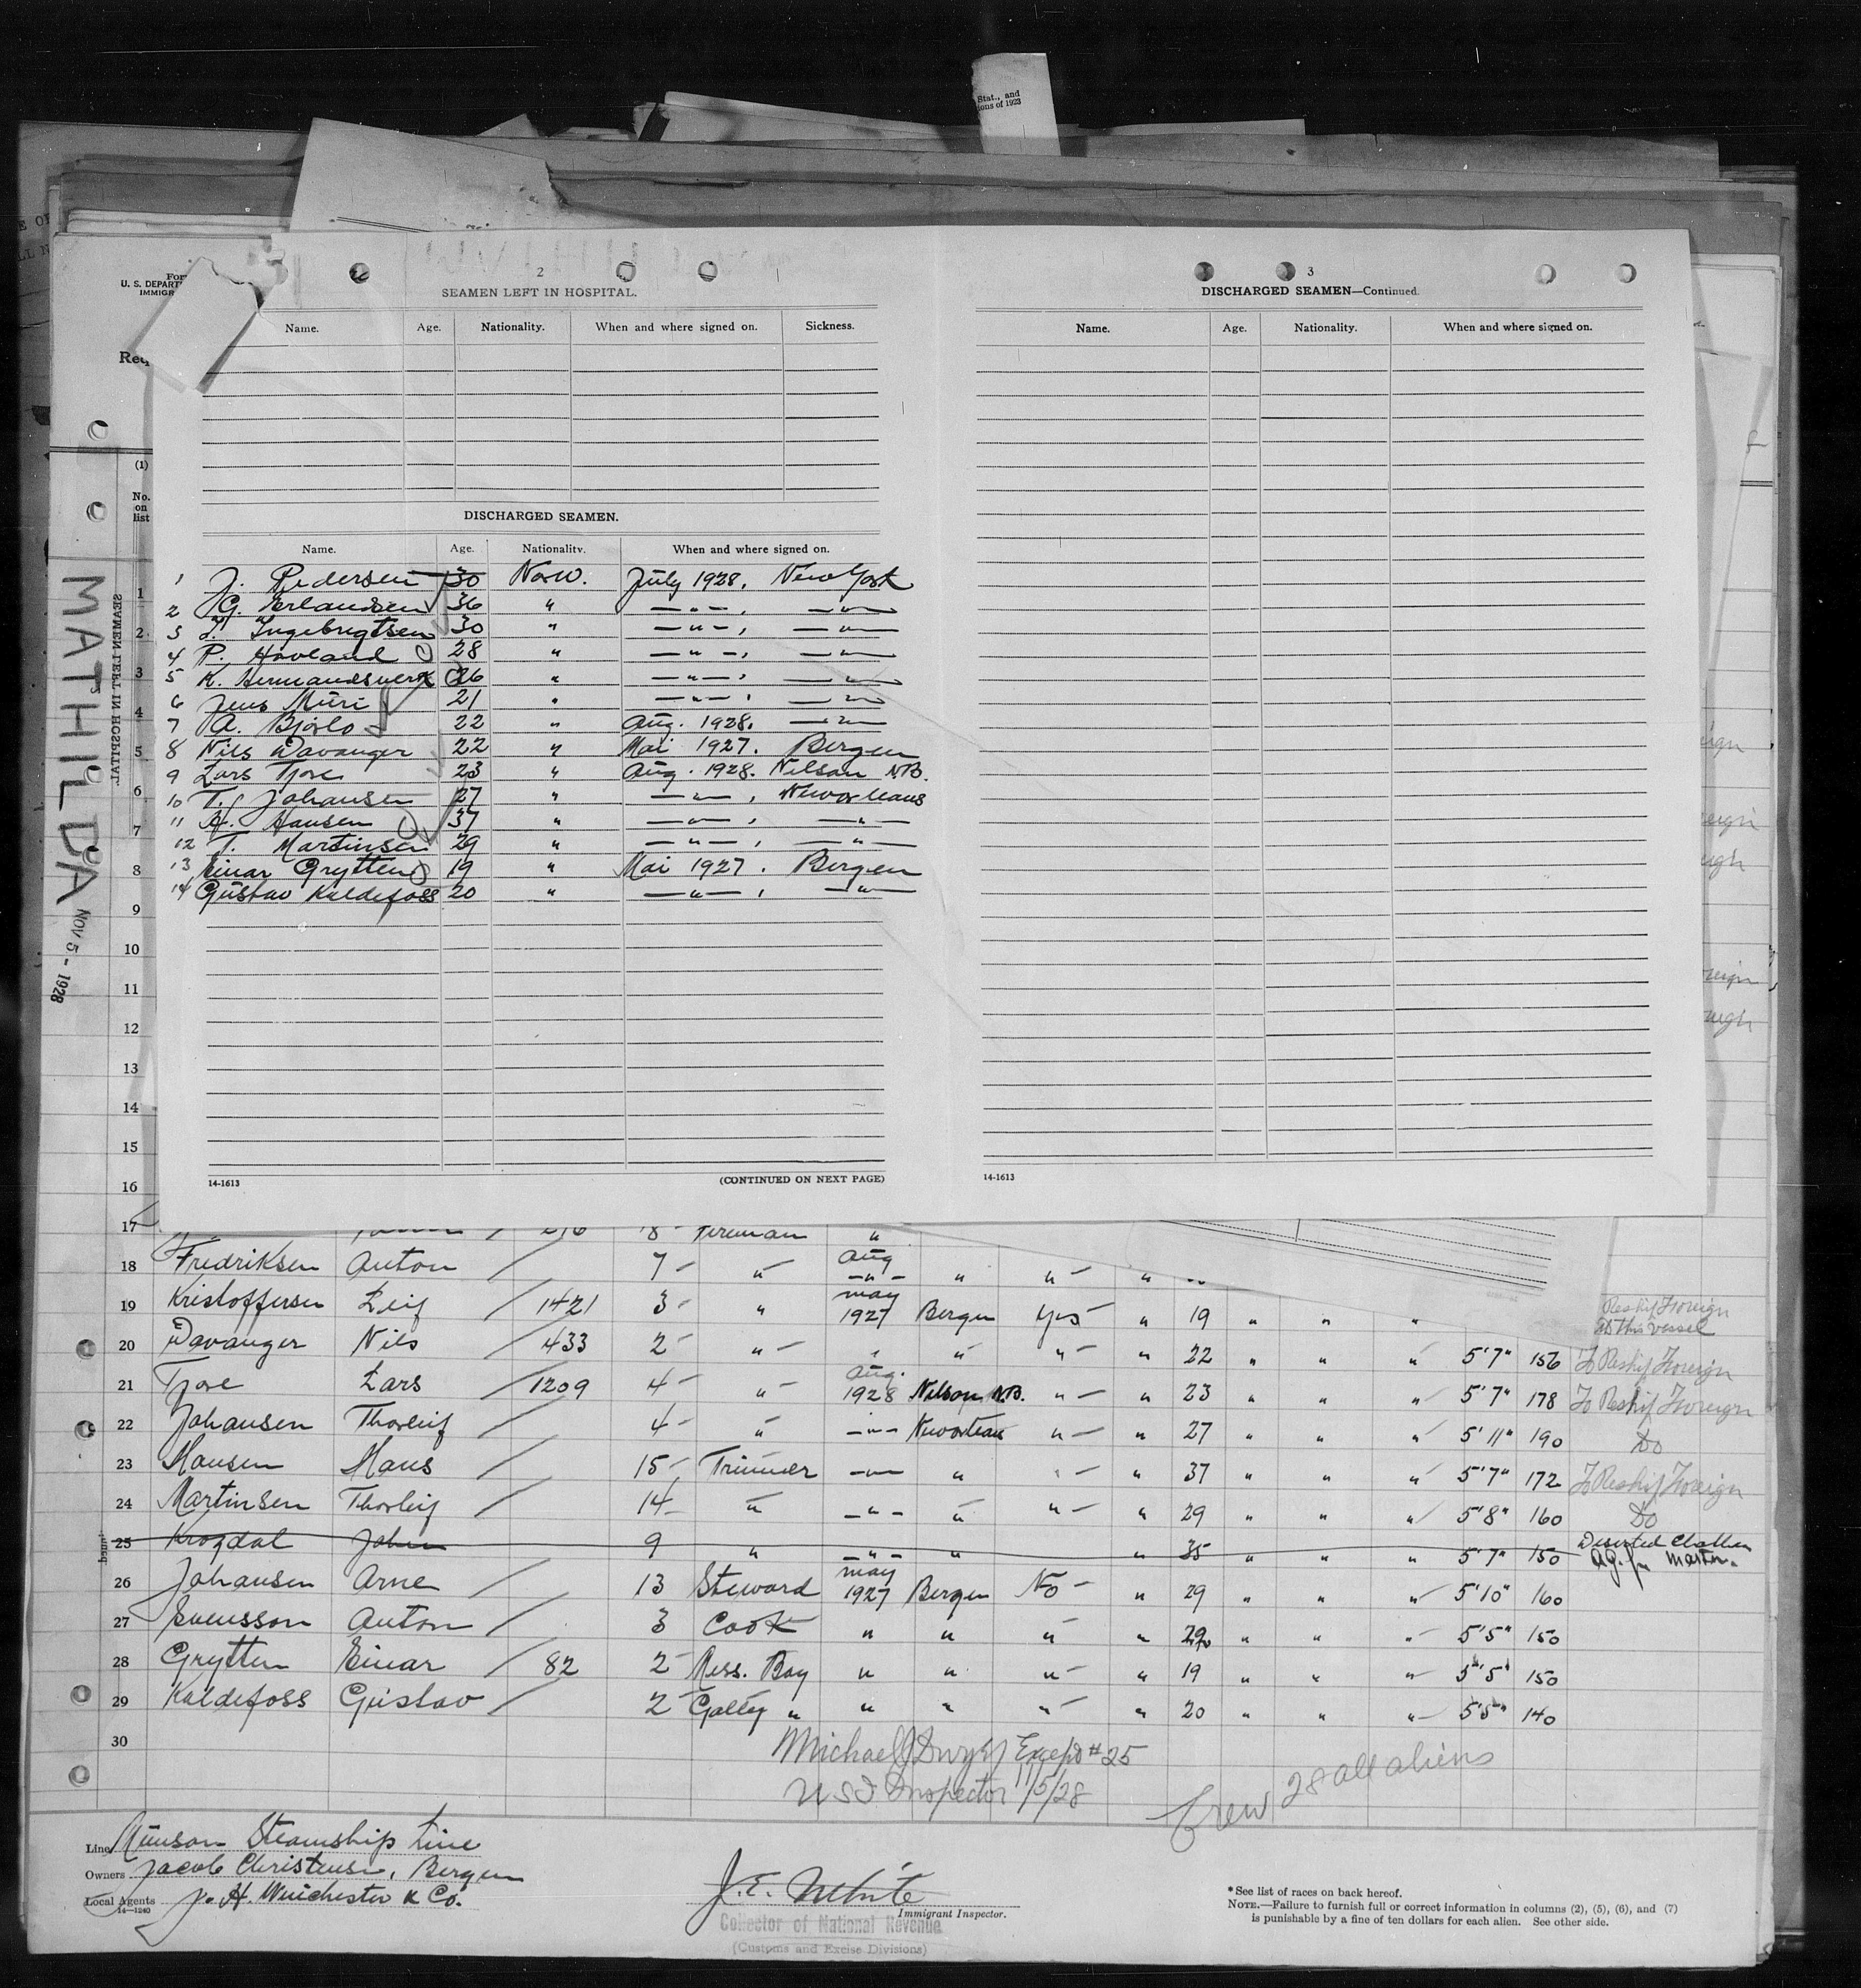 Stat., and
ions of 1923
For
U. S. DEPART
IMMIGR
Req
(1)
No.
on
list
MATHILDA
NOV 5 - 1928
SEAMEN LEFT IN HOSPITAL.
2
SEAMEN LEFT IN HOSPITAL.
Name. Age. Nationality. When and where signed on. Sickness.
DISCHARGED SEAMEN.
Name. Age. Nationality. When and where signed on.
1 J. Pedersen 30 Norw. July 1928, New York
2 G. Erlandsen 36 " —"—, —"—
3 T. Ingebrigtsen 30 " —"—, —"—
4 P. Hovland 28 " —"—, —"—
5 K. 26 " —"—, —"—
6 Jens Müri 21 " —"—, —"—
7 A. Bjørlo 22 " Aug. 1928. —"—
8 Nils Davanger 22 " Mai 1927. Bergen
9 Lars Tjore 23 " Aug. 1928. Nelson NB.
10 T. Johansen 27 " —"—, New Orleans
11 H. Hansen 37 " —"—, —"—
12 T. Martinsen 29 " —"—, —"—
13 Einar Grytten 19 " Mai 1927. Bergen
14 Gustav Kaldefoss 20 " —"—, —"—
14-1613 (CONTINUED ON NEXT PAGE)
3
DISCHARGED SEAMEN—Continued.
Name. Age. Nationality. When and where signed on.
14-1613
1
2
3
4
5
6
7
8
9
10
11
12
13
14
15
16
17 8 - Fireman "
18 Fredriksen Anton / 7 - " Aug —"— " " - "
19 Kristoffersen Leif / 1421 3 - " may 1927 Bergen Yes - " 19 " " " Reship Foreign on this vessel
20 Davanger Nils / 433 2 - " - " " " - " 22 " " " 5'7" 156 To Reship Foreign
21 Tjore Lars / 1209 4 - " - Aug. 1928 Nelson N.B. " - " 23 " " " 5'7" 178 To Reship Foreign
22 Johansen Thorleif / 4 - " —"— New Orleans " - " 27 " " " 5'11" 190 Do
23 Hansen Hans / 15 - Trimmer —"— " " - " 37 " " " 5'7" 172 To Reship Foreign
24 Martinsen Thorleif / 14 - " —"— " " - " 29 " " " 5'8" 160 Do
25 Krogdal John 9 " —"— " " 35 " " " 5'7" 150 Deserted
26 Johansen Arne / 13 Steward may 1927 Bergen No - " 29 " " " 5'10" 160
27 Svensson Anton / 3 Cook " " " " 29 " " " 5'5" 150
28 Grytten Einar / 82 2 - Mess. Boy " " " - " 19 " " " 5'5" 150
29 Kaldefoss Gustav / 2 - Galley " " " " - " 20 " " " 5'5" 140
30
Michael J Dwyer Except #25
U S I Inspector 11/5/28
Crew 28 all aliens
Line Munson Steamship Line
Owners Jacob Christensen, Bergen
Local Agents J. H. Winchester & Co.
14—1240
J. E. White
Immigrant Inspector.
Collector of National Revenue
(Customs and Excise Divisions)
*See list of races on back hereof.
NOTE.—Failure to furnish full or correct information in columns (2), (5), (6), and (7)
is punishable by a fine of ten dollars for each alien. See other side.